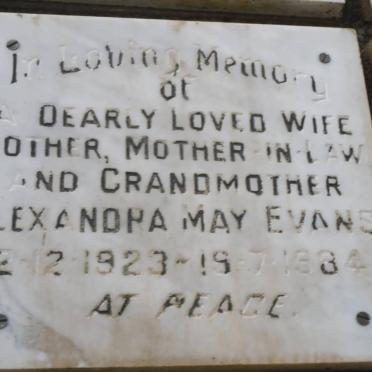 In Loving Memory
of
A DEARLY LOVED WIFE
OTHER, MOTHER IN LAW
AND GRANDMOTHER
LEXANDRA MAY EVANS
2-12-1923-19-7-1984
AT PEACE.